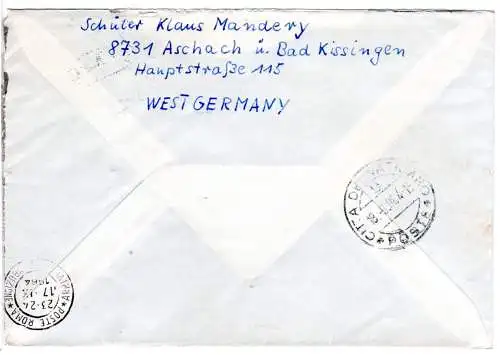 Schüler Klaus Mandery
8731 Aschach ü. Bad Kissingen
Hauptstraße 115
WESTGERMANY
CITTA DEL VATICANO
POSTE
POSTE ROMA
23-24
17